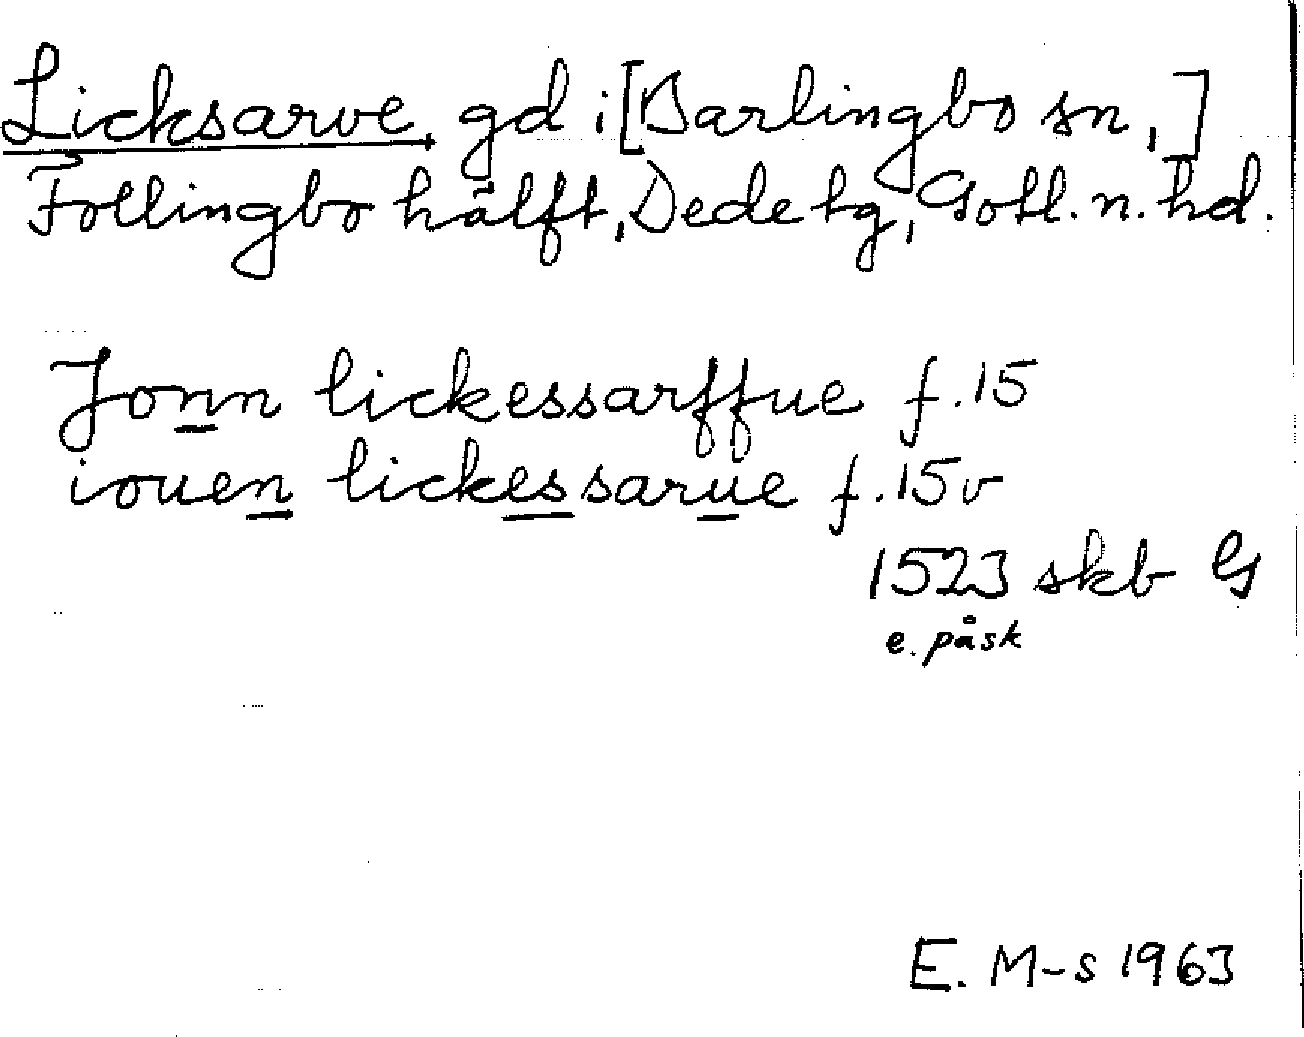 Licksarve, gd i [Barlingbo sn,]
Follingbo hälft, Dede tg, Gotl. n. hd.
Jonn lickessarffue f. 15
iouen lickessarue f. 15v
1523 skb G
e. påsk
E. M-s 1963